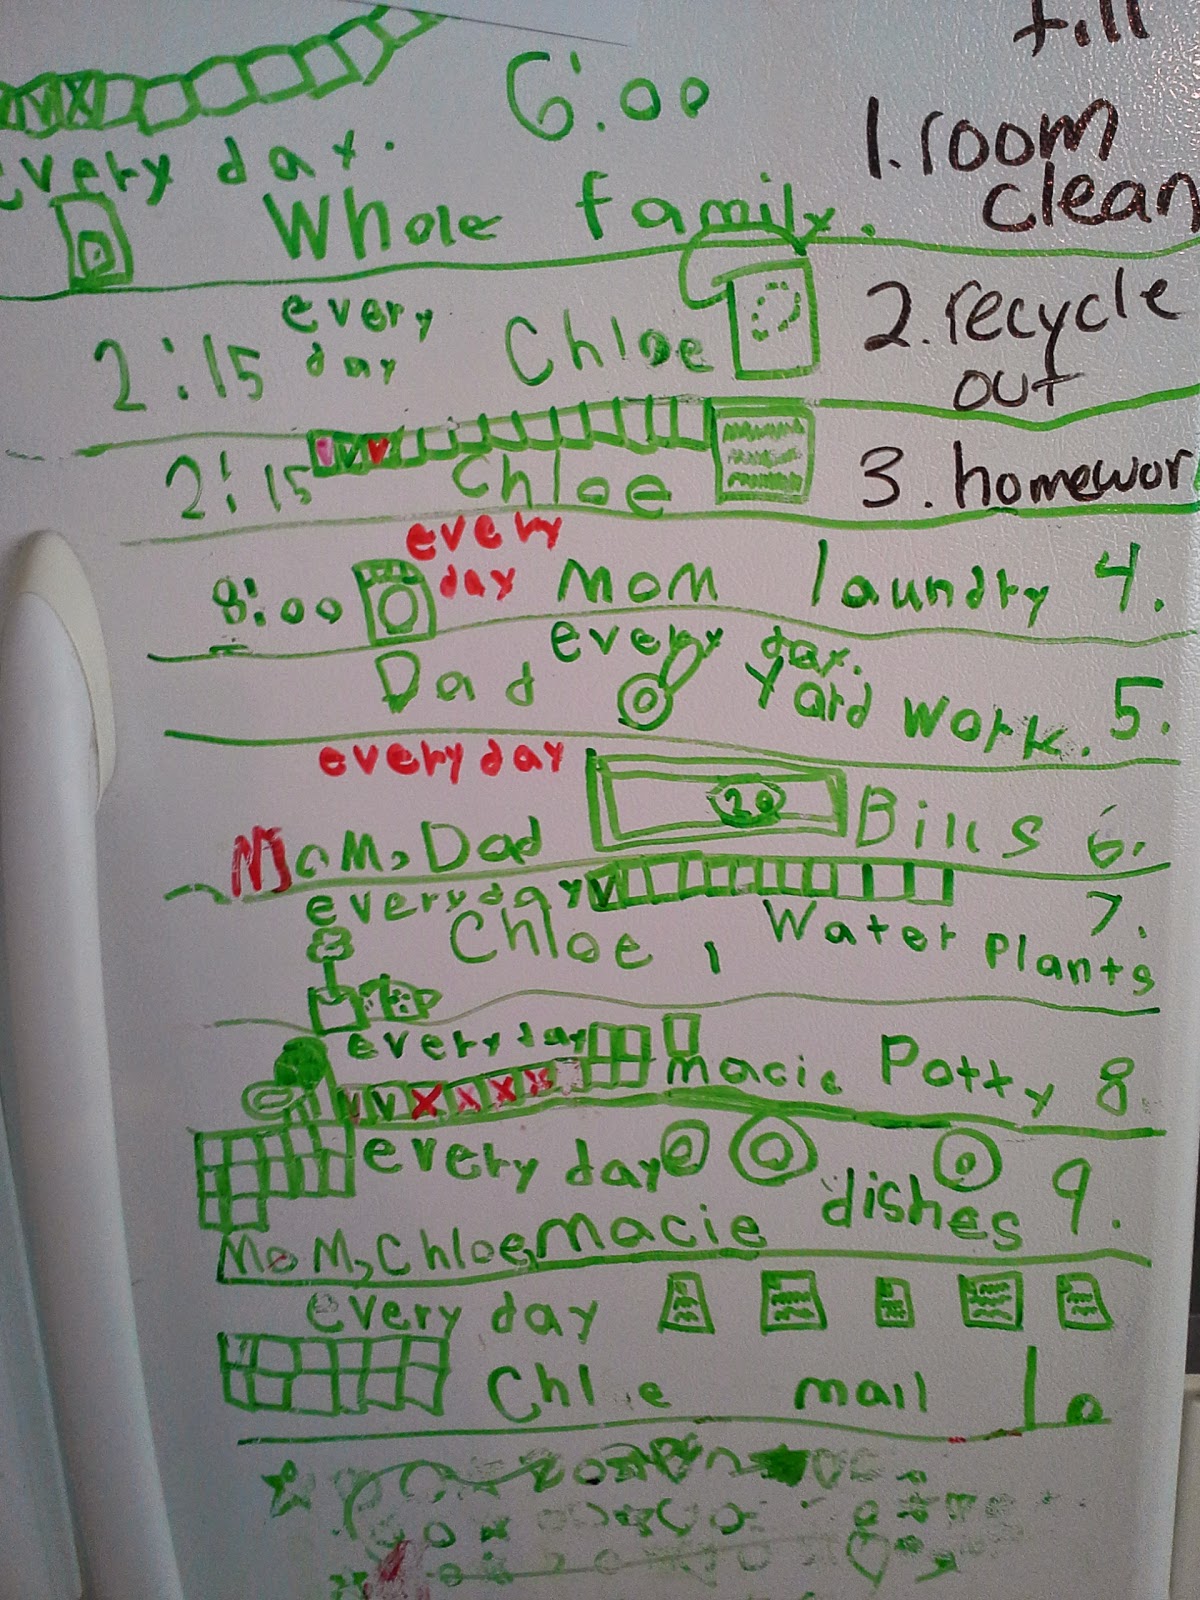 till
6:00
every day.
1. room
clean
Whole family.
every
day
2:15 Chloe
2. recycle
out
2:15 Chloe
3. homewor
every
day
8:00 MOM laundry 4.
every day.
Dad Yard work. 5.
every day
20
MOM, Dad Bills 6.
every day
Chloe, Water Plants 7.
every day
macie Potty 8.
every day
dishes 9.
MOM, Chloe, macie
every day
Chloe mail 10